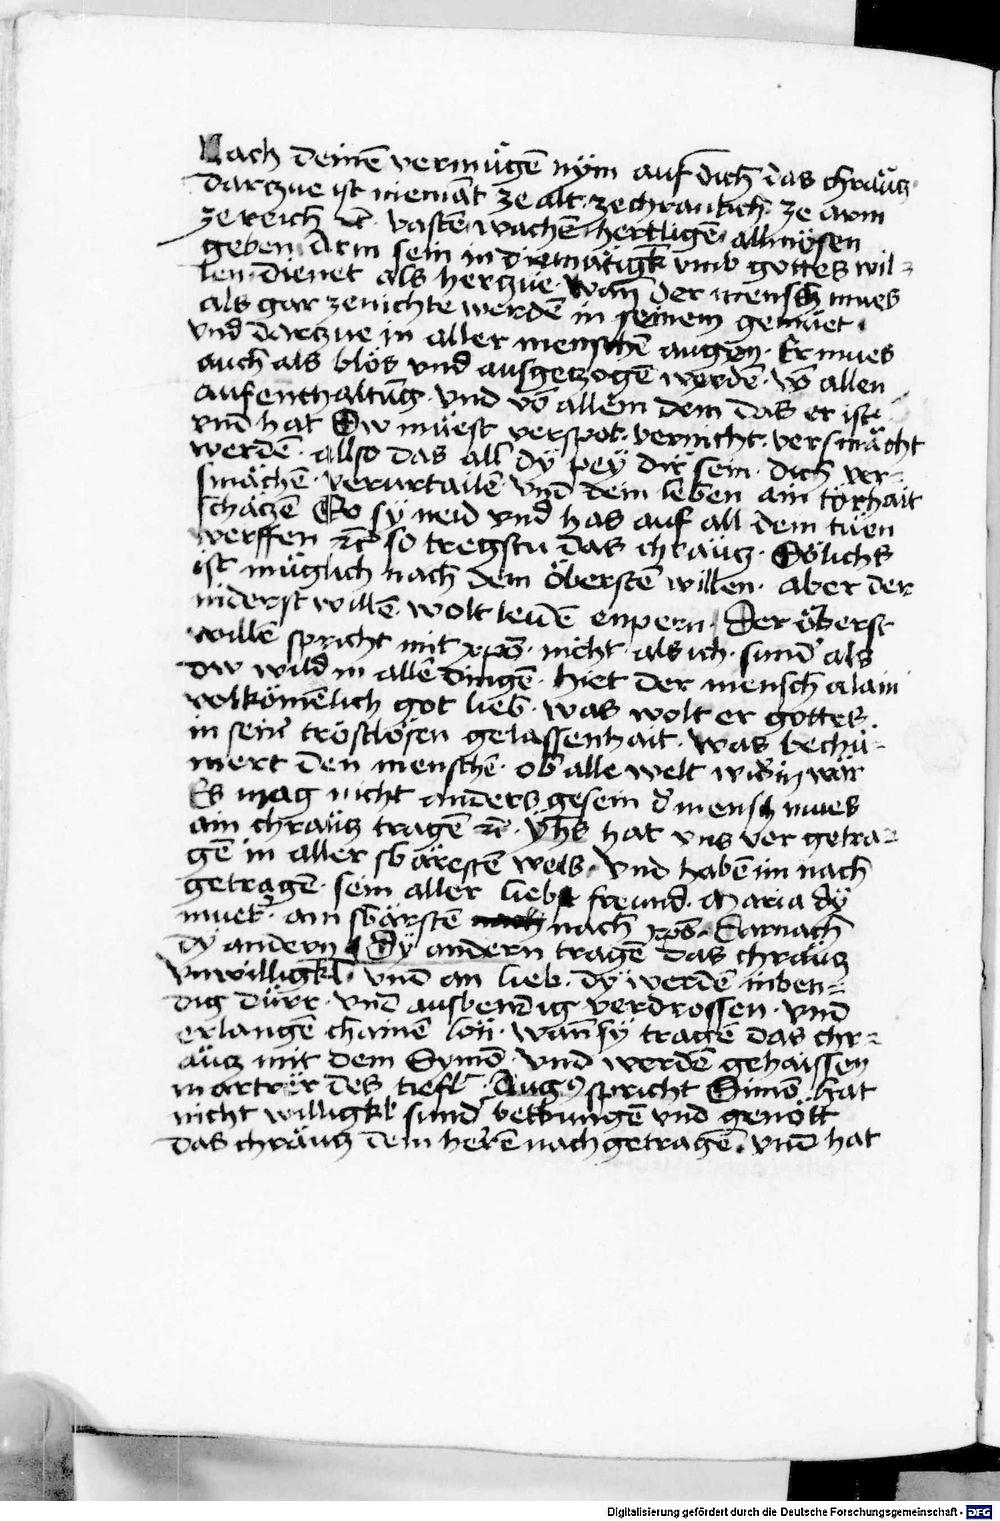 Nach deinē vermügē nÿm auf dich das chräucz
darczue ist niemāt ze alt · ze chrankch · ze arm
ze reich ꝛc̄ · vastē · wachē · hertligē · allmösen
geben · Arm sein in diemätigk̄ vmb gottes wil=
len · dienet als herczue · wan̄ der mensch mues
als gar zenichte werdē in seinem gemüet ·
vnd darczue in aller menschē augen · Er mues
auch als blös vnd ausgeczogē werdē · vō allen
aufenthaltūg · vnd vō allem dem das er ist
vnd hat Dw müest verspot · vernicht · versmächt
werdē · Allso das all dÿ peÿ dir sein · dich ver=
smächē · verurtailē vnd dein leben ain törhait
schäczē So sÿ neid vnd has auf all dein tüen
werffen ꝛc̄ so tregstu das chräucz · Sölichs
ist müglich nach dem öberstē willen · aber der
niderst willē wolt leidē enpern · Der öberst
willē spricht mit xp̄o · nicht als ich · sund' als
dw wild in allē dingē · Hiet der mensch alain
volkömēlich got lieb · was wolt er gottes ·
in sein' tröstlösen gelassenhait · was bechü=
mert den menschē · ob alle welt wid' in wär
Es mag nicht anders gesein d' mensch mues
ain chräucz tragē ꝛc̄ · ÿhs hat vns vor getra=
gē in aller swärestē weis · vnd habē im nach
getragē · sein aller liebst freund · Maria dÿ
muet' · am swärstē nach nach xp̄o · Darnach
dÿ andern Dÿ andern tragē das chräucz
vnwilligkl̄ · vnd an lieb · dÿ werdē inben=
dig dürr · vnd ausbendig verdrossen · vnd
erlangē chainē lön · wan̄ sÿ tragē das chr=
äucz mit dem Symō · vnd werdē gehaissen
martrër des tiefl' · Augꝰ spricht Simō hat
nicht willigkl̄ sund' betwungē vnd genött
das chräucz dem herē nachgetragē · vnd hat
Digitalisierung gefördert durch die Deutsche Forschungsgemeinschaft - DFG